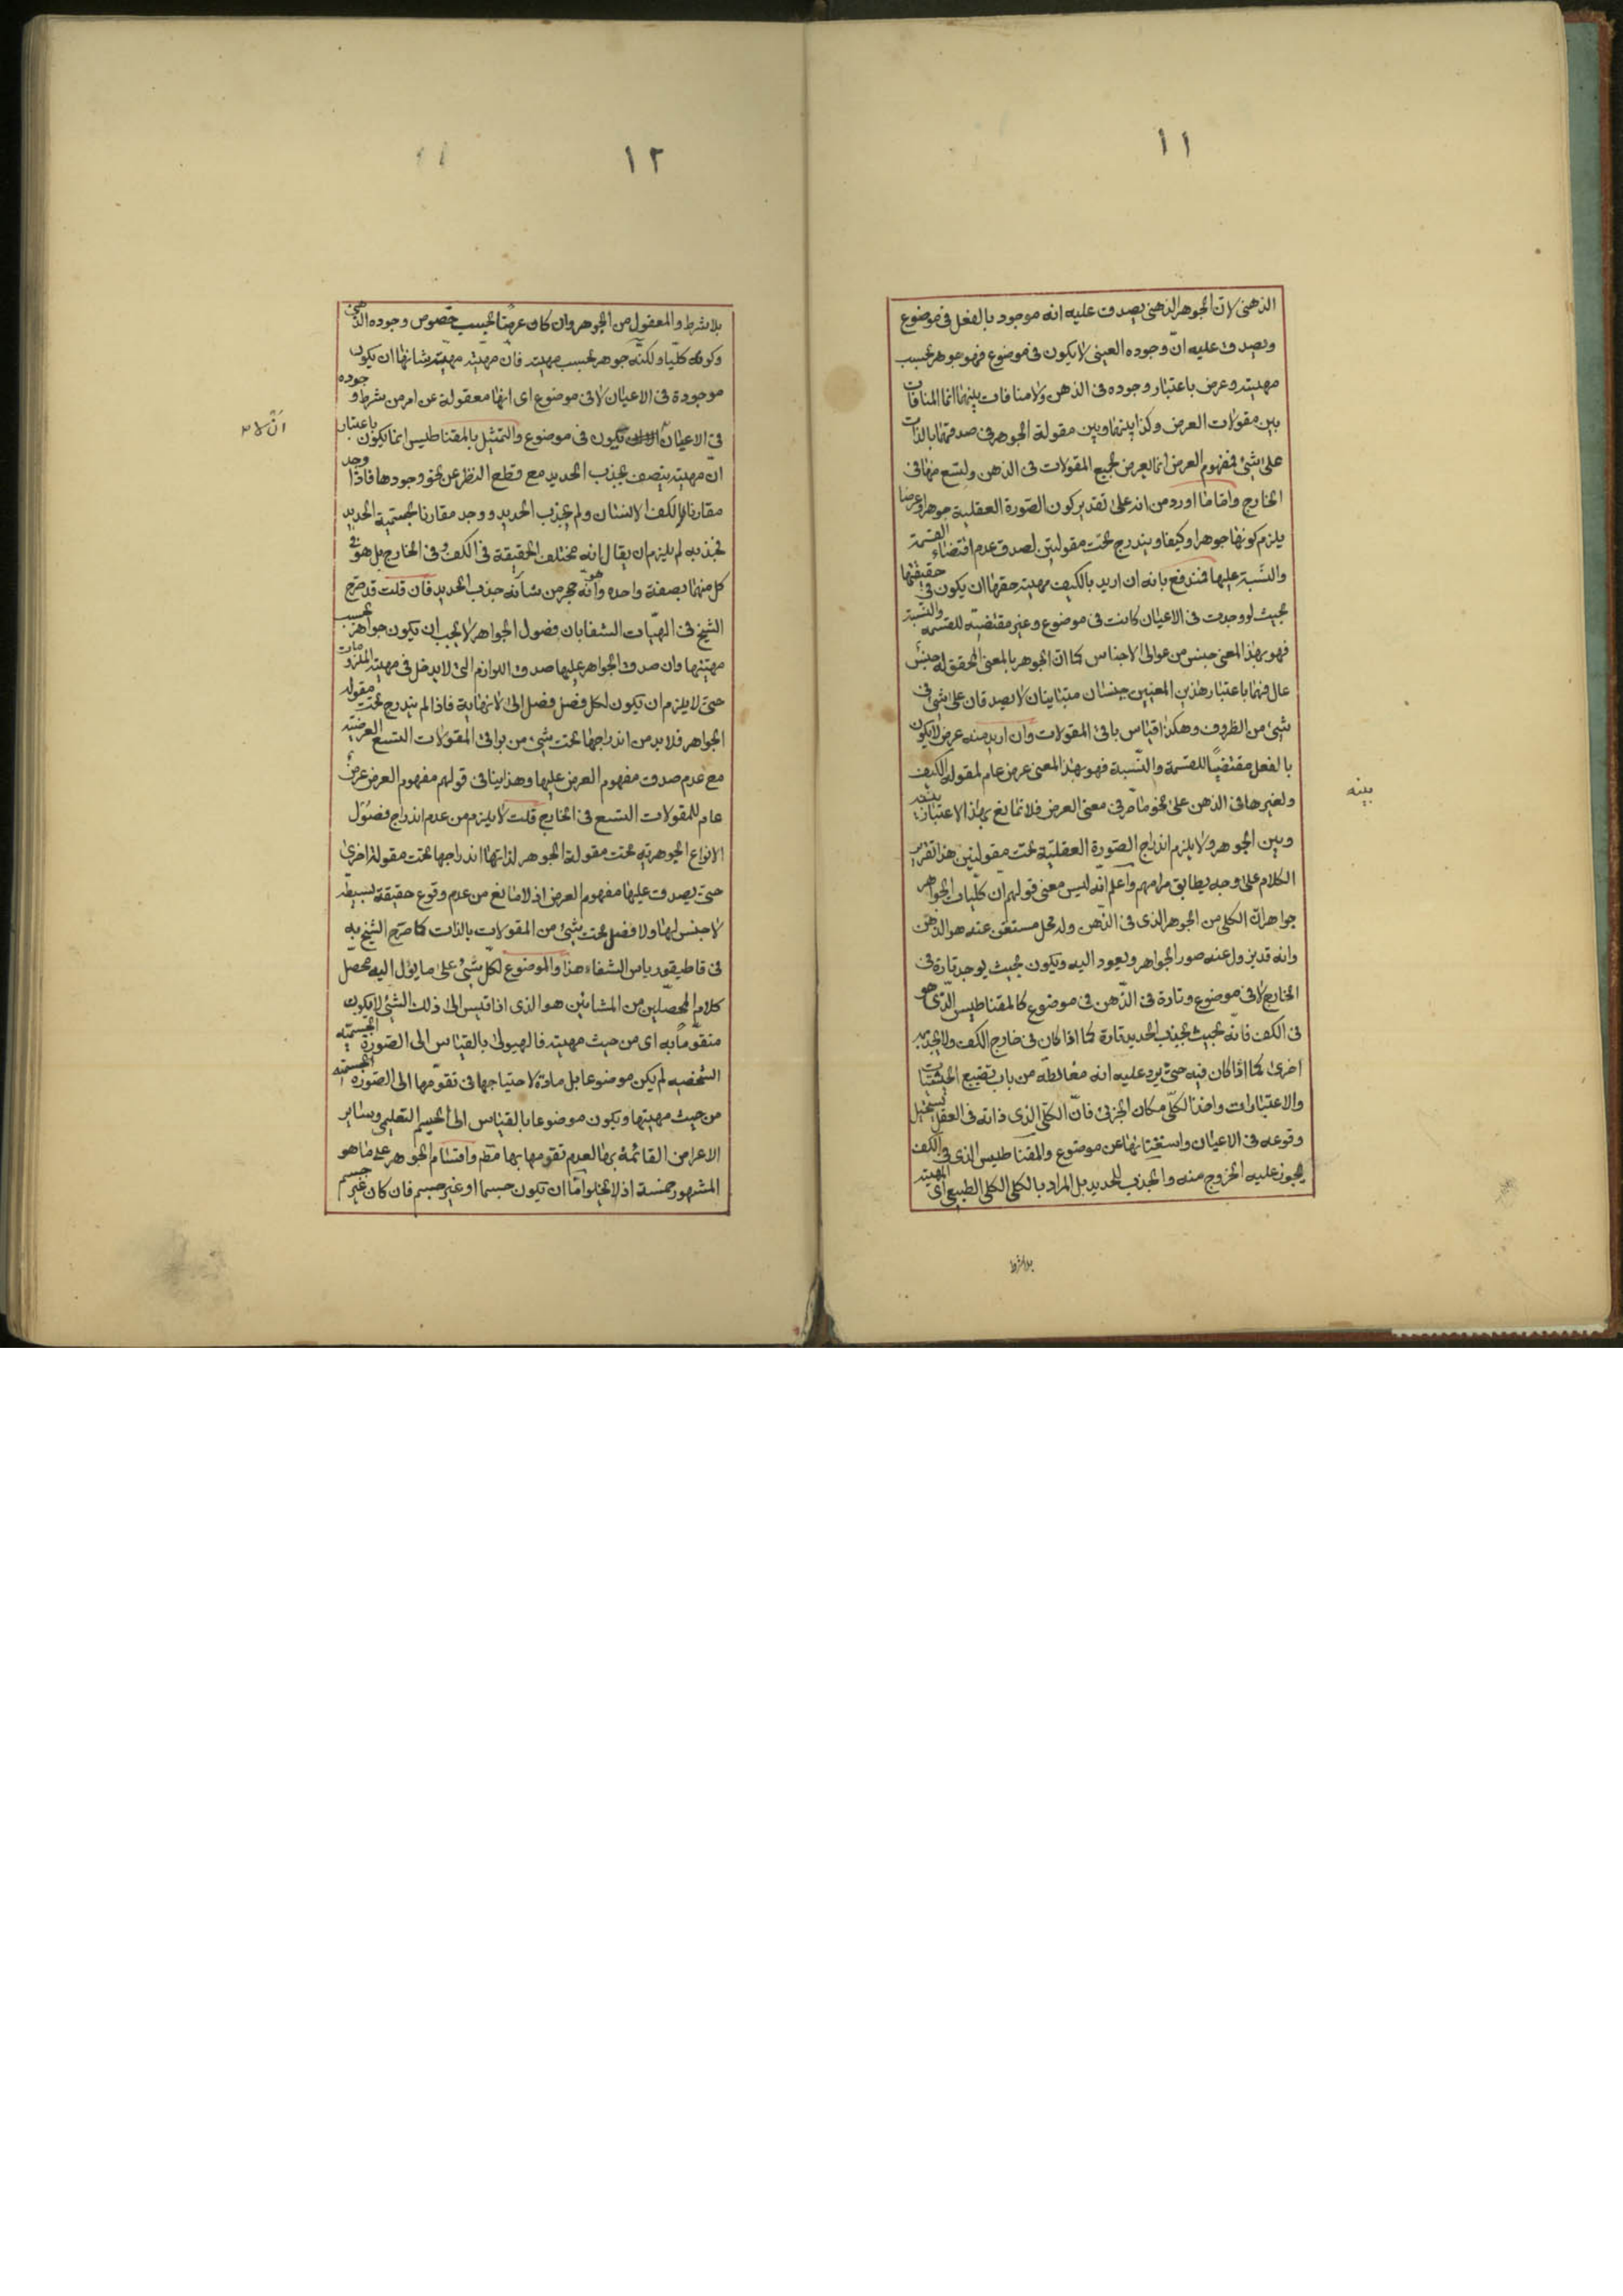 ١١
الذهنى لان الجوهر الذهنى يصدق عليه انه موجود بالفعل فى موضوع
ويصدق عليه انّ وجوده العينى لا يكون فى موضوع فهو جوهر بحسب
مهيته وعرض باعتبار وجوده فى الذهن ولا منافات بينهما انما المنافات
بين مقولات العرض وكذا بينها وبين مقولة الجوهر فى صدقها بالذات
على شئ فمفهوم العرض انما يعرض لجميع المقولات فى الذهن ولتسع منها فى
الخارج واما ما اورد من انه على تقدير كون الصّورة العقلية جوهرا وعرضا
يلزم كونها جوهرا وكيفا ويندرج تحت مقولتين لصدق عدم اقتضاء القسمة
والنّسبة عليها فندفع بانه ان اريد بالكيف مهيته حقها ان يكون فى حقيقتها
بحيث لو وجدت فى الاعيان كانت فى موضوع وغير مقتضيته للقسمه والنّسبة
فهو بهذا المعنى جنس من عوالى الاجناس كما ان الجوهر بالمعنى المحقق له جنس
عال فهما باعتبار هذين المعنيين جنسان متباينان لا يصدقان على شئ فى
شئ من الظروف وهكذا قياس باقى المقولات وان اريد منه عرض لا يكون
بالفعل مقتضياً للقسمة والنّسبة فهو بهذا المعنى عرض عام لمقولة الكيف
ولغيرها فى الذهن على نحو ما مر فى معنى العرض فلا تمانع بهذا الاعتبار بينه
وبين الجوهر ولا يلزم اندراج الصّورة العقليّة تحت مقولتين هذا تقرير
الكلام على وجه يطابق مرامهم واعلم انّه ليس معنى قولهم ان كلّيات الجواهر
جواهر انّ الكلى من الجوهر الذى فى الذّهن وله محل مستغن عنه هو الذهن
وانه قد يزول عنه صور الجواهر ويعود اليه ويكون بحيث يوجد تارة فى
الخارج لا فى موضوع وتارة فى الذّهن فى موضوع كالمقناطيس الّذى هو
فى الكف فانّه بحيث يجذب الحديد تارة كما اذا كان فى خارج الكف ولا يجذبه
اخرى كما اذا كان فيه حتى يرد عليه انه مغالطه من باب تضييع الحيثيات
والاعتبارات واخذ الكلّى مكان الجزئى فانّ الكلّى الذى ذاته فى العقل يستحيل
وقوعه فى الاعيان واستغنائها عن موضوع والمقناطيس الذى فى الكف
يجوز عليه الخروج منه والجذب للحديد بل المراد بالكلى الكلى الطبيعى اى المهيته
بلاشرط
بينه
١٢
بلا شرط والمعقول من الجوهر وان كان عرضا بحسب خصوص وجوده الذهنى
وكونه كلّيا ولكنّه جوهر بحسب مهيته فانّ مهيّته مهيّته شانها ان يكون
موجودة فى الاعيان لا فى موضوع اى انها معقولة عن امر من شرط وجوده
فى الاعيان ان لا يكون فى موضوع والتمثيل بالمقناطيس انما يكون باعتبار
انّ مهيته يتصف بجذب الحديد مع قطع النظر عن نحو وجودها فاذا وجد
مقارنا لكف الانسان ولم يجذب الحديد ووجد مقارنا لجسمية الحديد
فجذبه لم يلزم ان يقال انه مختلف الحقيقة فى الكف وفى الخارج بل هو فى
كل منهما بصفة واحده وهو انّه حجر من شانه جذب الحديد فان قلت قد صرّح
الشيخ فى الهيات الشفا بان فصول الجواهر لا يجب ان يكون جواهر بحسب
مهيتها وان صدق الجواهر عليها صدق اللوازم التى لا يدخل فى مهية الملزومات
حتى لا يلزم ان يكون لكل فصل فصل الى لا نهاية فاذا لم يندرج تحت مقوله
الجواهر فلا بد من اندراجها تحت شئ من بواقى المقولات التسع العرضيّه
مع عدم صدق مفهوم العرض عليها وهذا ينافى قولهم مفهوم العرض عرض
عام للمقولات التسع فى الخارج قلت لا يلزم من عدم اندراج فصول
الانواع الجوهريّه تحت مقولة الجوهر لذاتها اندراجها تحت مقولة اخرى
حتى يصدق عليها مفهوم العرض اذ لا مانع من عدم وقوع حقيقة بسيطه
لا جنس لها ولا فصل تحت شئ من المقولات بالذات كما صرّح الشيخ به
فى قاطيقورياس الشفاء هذا والموضوع لكلّ شئ على ما يؤل اليه محصل
كلام المحصّلين من المشائين هو الذى اذا قيس الى ذلك الشئ لا يكون
متقوّماً به اى من حيث مهيته فالهيولى بالقياس الى الصّورة الجسميّه
الشخصيه لم يكن موضوعا بل مادة لاحتياجها فى تقوّمها الى الصّورة الجسميّه
من حيث مهيتها ويكون موضوعا بالقياس الى الجسم التعليمى وساير
الاعراض القائمة بها لعدم تقومها بها مطم واقسام الجوهر على ما هو
المشهور خمسة اذ لا يخلو امّا ان يكون جسما او غير جسم فان كان غير جسم